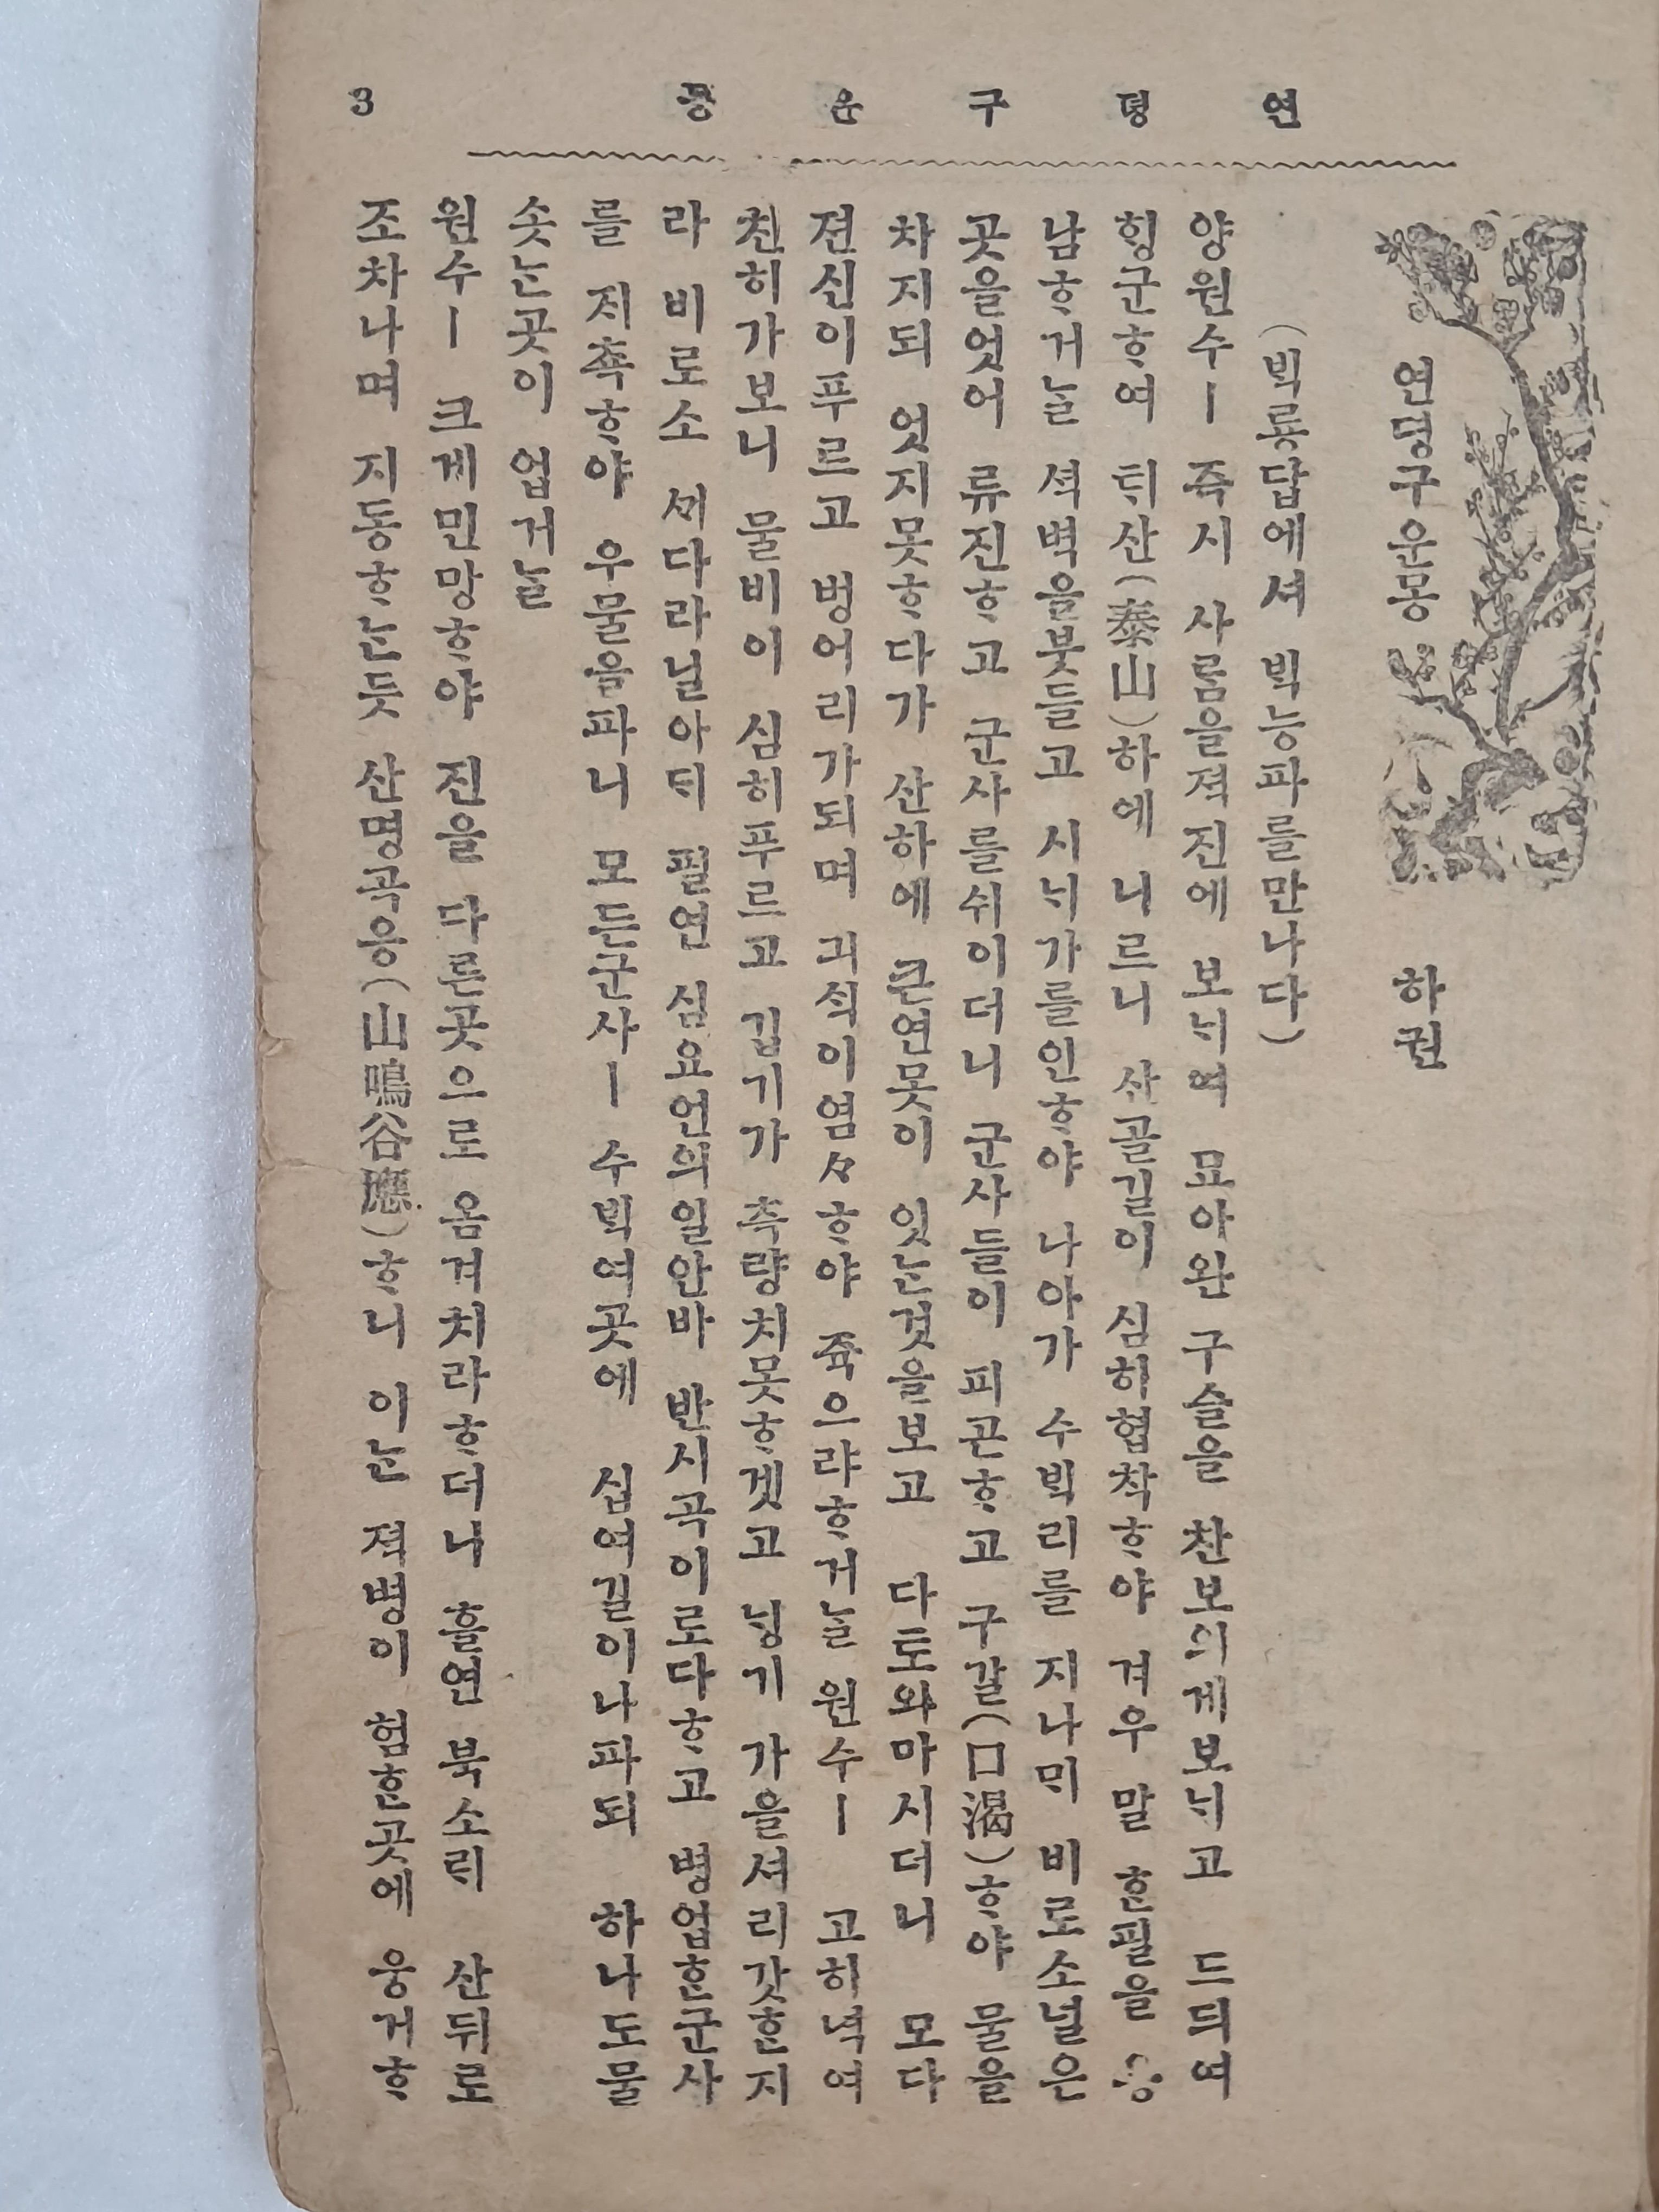 연뎡구운몽 하권
(빅룡담에셔 빅능파를만나다)
양원수ㅣ 즉시 사ᄅᆞᆷ을젹진에 보ᄂᆡ여 묘아완 구슬을 찬보의게보ᄂᆡ고 드듸여
ᄒᆡᆼ군ᄒᆞ여 ᄐᆡ산(泰山)하에 니르니 산골길이 심히협착ᄒᆞ야 겨우 말 ᄒᆞᆫ필을 용
납ᄒᆞ거ᄂᆞᆯ 셕벽을붓들고 시ᄂᆡ가를인ᄒᆞ야 나아가 수ᄇᆡᆨ리를 지나ᄆᆡ 비로소널은
곳을엇어 류진ᄒᆞ고 군사를쉬이더니 군사들이 피곤ᄒᆞ고 구갈(口渴)ᄒᆞ야 물을
차지되 엇지못ᄒᆞ다가 산하에 큰연못이 잇ᄂᆞᆫ것을보고 다토와마시더니 모다
젼신이푸르고 벙어리가되며 긔ᄉᆡᆨ이엄〻ᄒᆞ야 죽으랴ᄒᆞ거ᄂᆞᆯ 원수ㅣ 고히녁여
친히가보니 물비이 심히푸르고 깁기가 측량치못ᄒᆞ겟고 닝기 가을셔리갓ᄒᆞᆫ지
라 비로소 ᄭᆡ다라날아ᄃᆡ 필연 심요연의일안바 반시곡이로다ᄒᆞ고 병업ᄒᆞᆫ군사
를 ᄌᆡ촉ᄒᆞ야 우물을파니 모든군사ㅣ 수ᄇᆡᆨ여곳에 십여길이나파되 하나도물
솟ᄂᆞᆫ곳이 업거ᄂᆞᆯ
원수ㅣ 크게민망ᄒᆞ야 진을 다른곳으로 옴겨치랴ᄒᆞ더니 홀연 북소ᄅᆡ 산뒤로
조차나며 지동ᄒᆞᄂᆞᆫ듯 산명곡응(山鳴谷應)ᄒᆞ니 이ᄂᆞᆫ 젹병이 험ᄒᆞᆫ곳에 웅거ᄒᆞ
연뎡구운몽
3